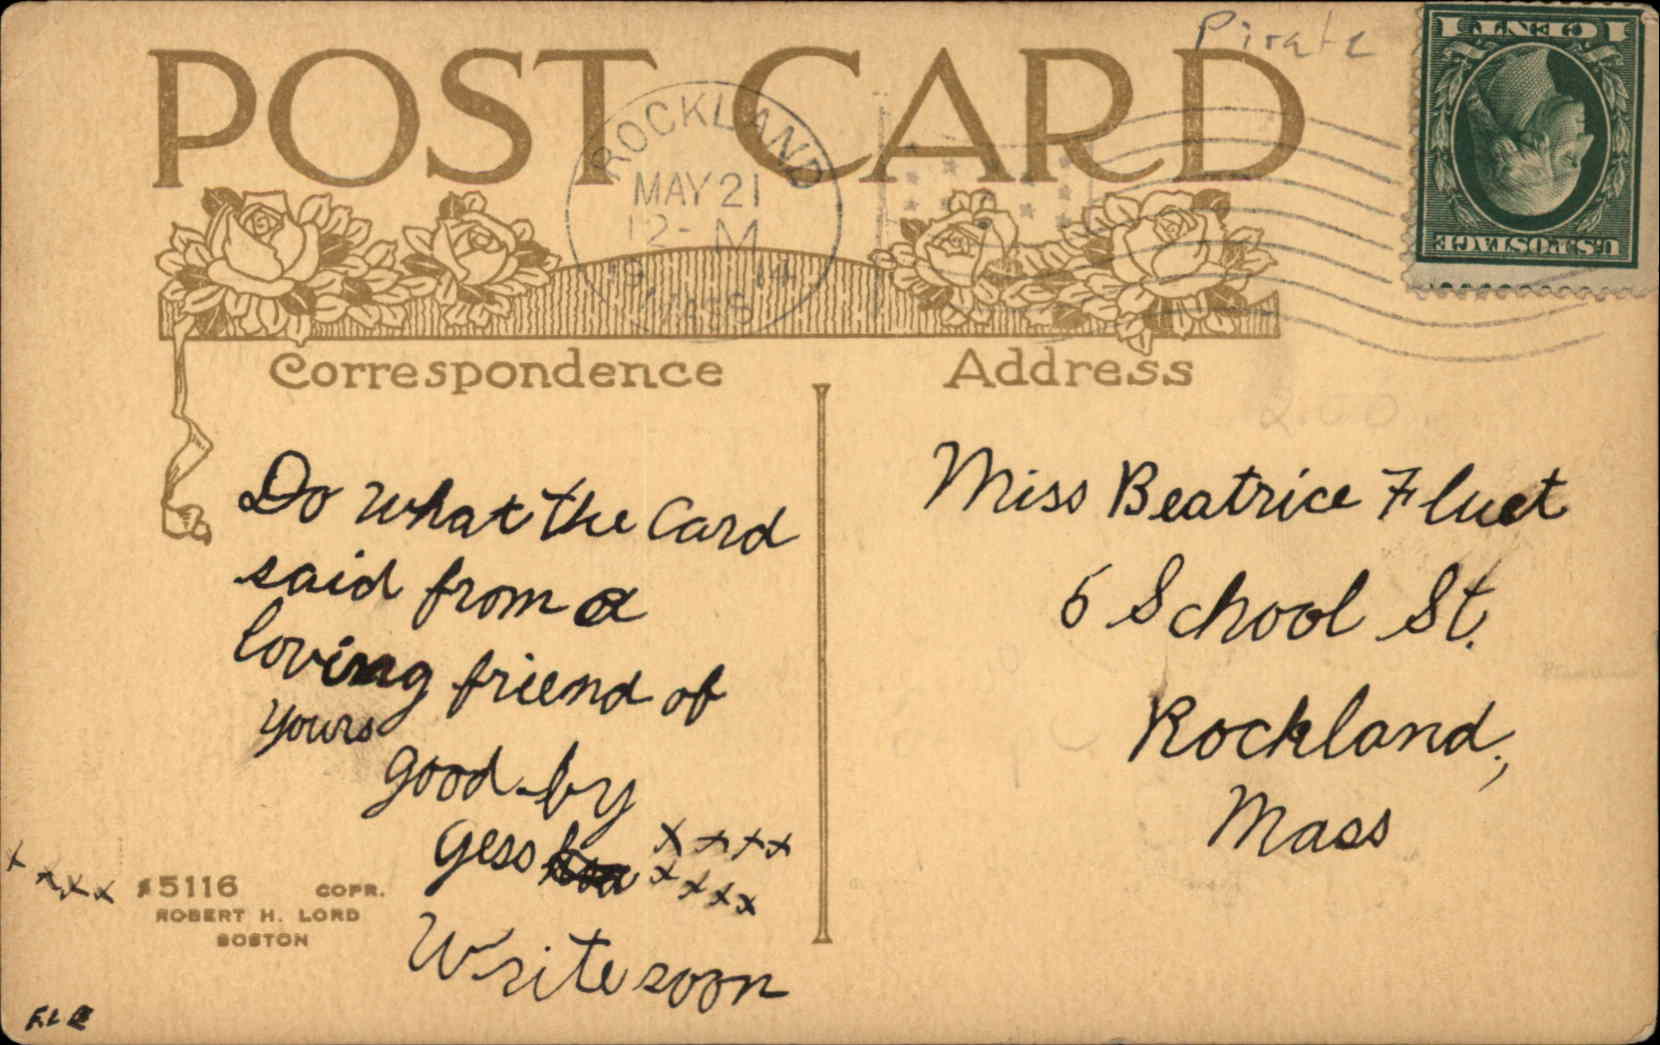 Pirate
POST CARD
1 CENT 1
U.S. POSTAGE
ROCKLAND
MAY 21
12- M
19 14
MASS
Correspondence
Address
2.00
Do what the Card
said from a
loving friend of
yours
good-by
gess
x x x x
x x x x
Write soon
Miss Beatrice Fluet
5 School St.
Rockland,
Mass
x x x x
#5116 COPR.
ROBERT H. LORD
BOSTON